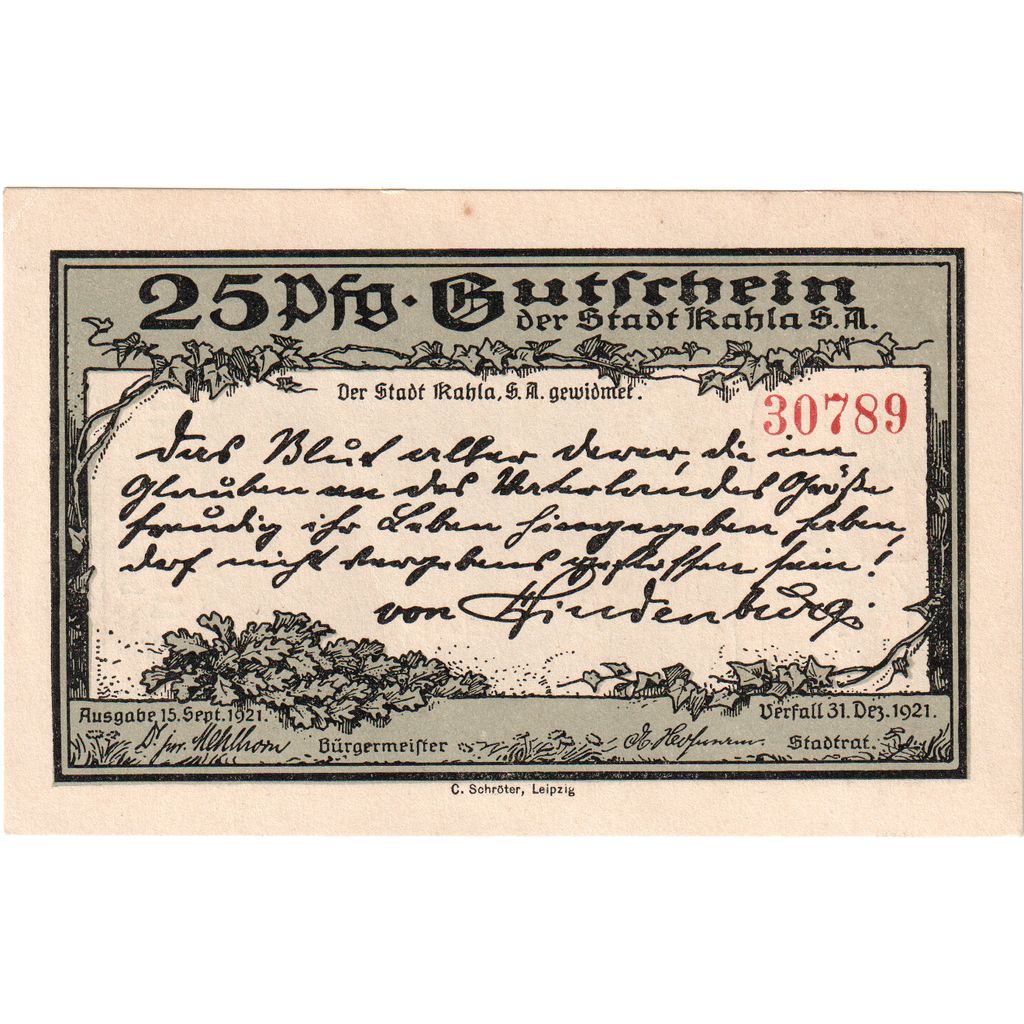 25 Pfg. Gutschein
der Stadt Kahla S.A.
Der Stadt Kahla, S.A. gewidmet.
30789
Das Blut aller derer, die im
Glauben an des Vaterlandes Größe
freudig ihr Leben hingegeben haben,
darf nicht vergebens geflossen sein!
von Hindenburg.
Ausgabe 15. Sept. 1921.
Verfall 31. Dez. 1921.
Dr jur. Mehlhorn Bürgermeister
Stadtrat.
C. Schröter, Leipzig